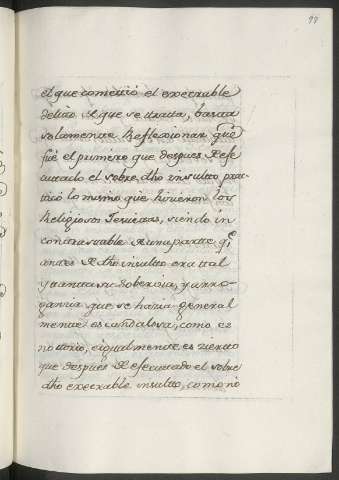 99
el que cometió el execrable
delito de que se trata, basta
solamente Reflexionar que
fué el primero que despues de efe
cutado el sobre dho insulto prac
ticó lo mismo que hicieron los
Religiosos Jesuitas, siendo in
contrastable de una parte, q.e
antes de dho insulto era tal
y tanta su soberbia, y arro-
gancia que se hazia general
mente escandalosa, como es
notorio, e igualmente es cierto
que despues de efecutado el sobre
dho execrable insulto, como no